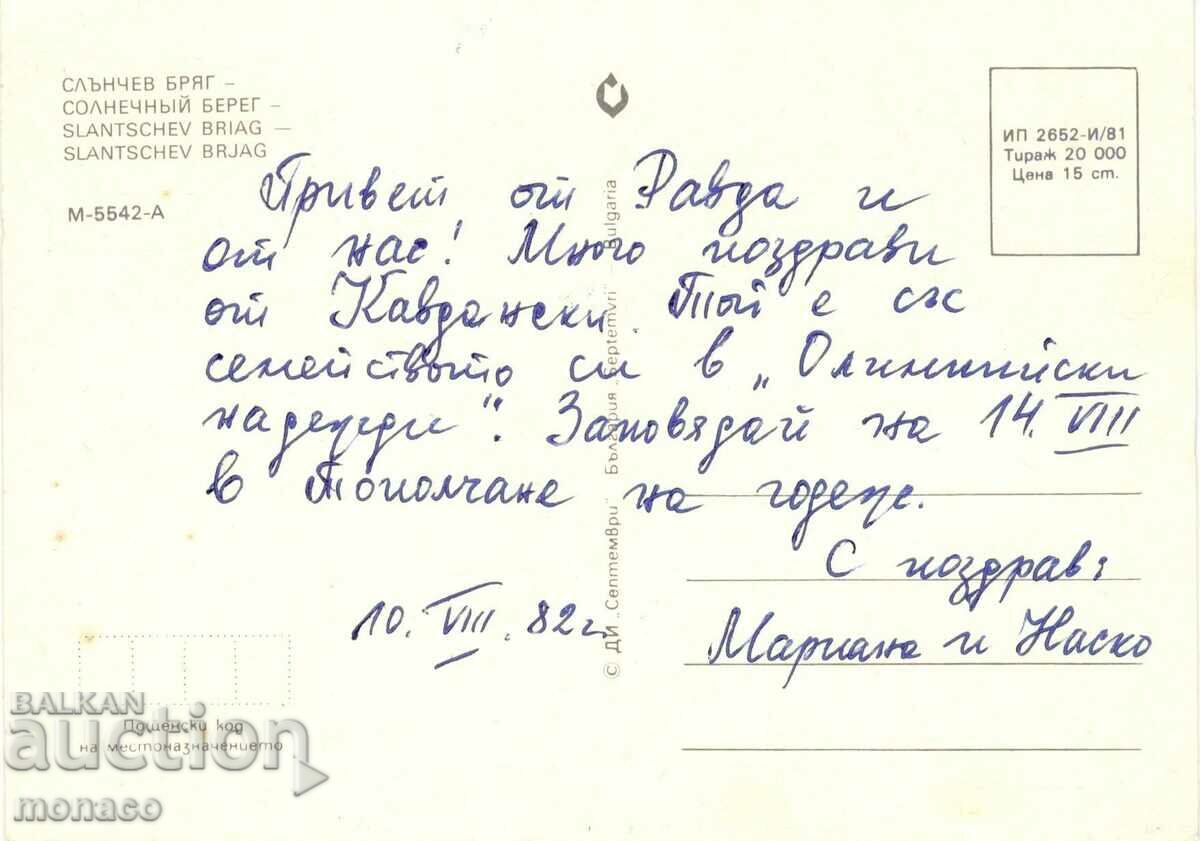 СЛЪНЧЕВ БРЯГ –
СОЛНЕЧНЫЙ БЕРЕГ –
SLANTSCHEV BRIAG —
SLANTSCHEV BRJAG
М-5542-А
ИП 2652-И/81
Тираж 20 000
Цена 15 ст.
Привет от Равда и
от нас! Много поздрави
от Кавдански. Той е със
семейството си в „Олимпийски
надежди“. Заповядай на 14. VIII
в Тополчане на годеж.
С поздрав:
10. VIII. 82 г.
Мариана и Наско
© ДИ „Септември“ България „Septemvri“ Bulgaria
Пощенски код
на местоназначението
BALKAN
auction
monaco